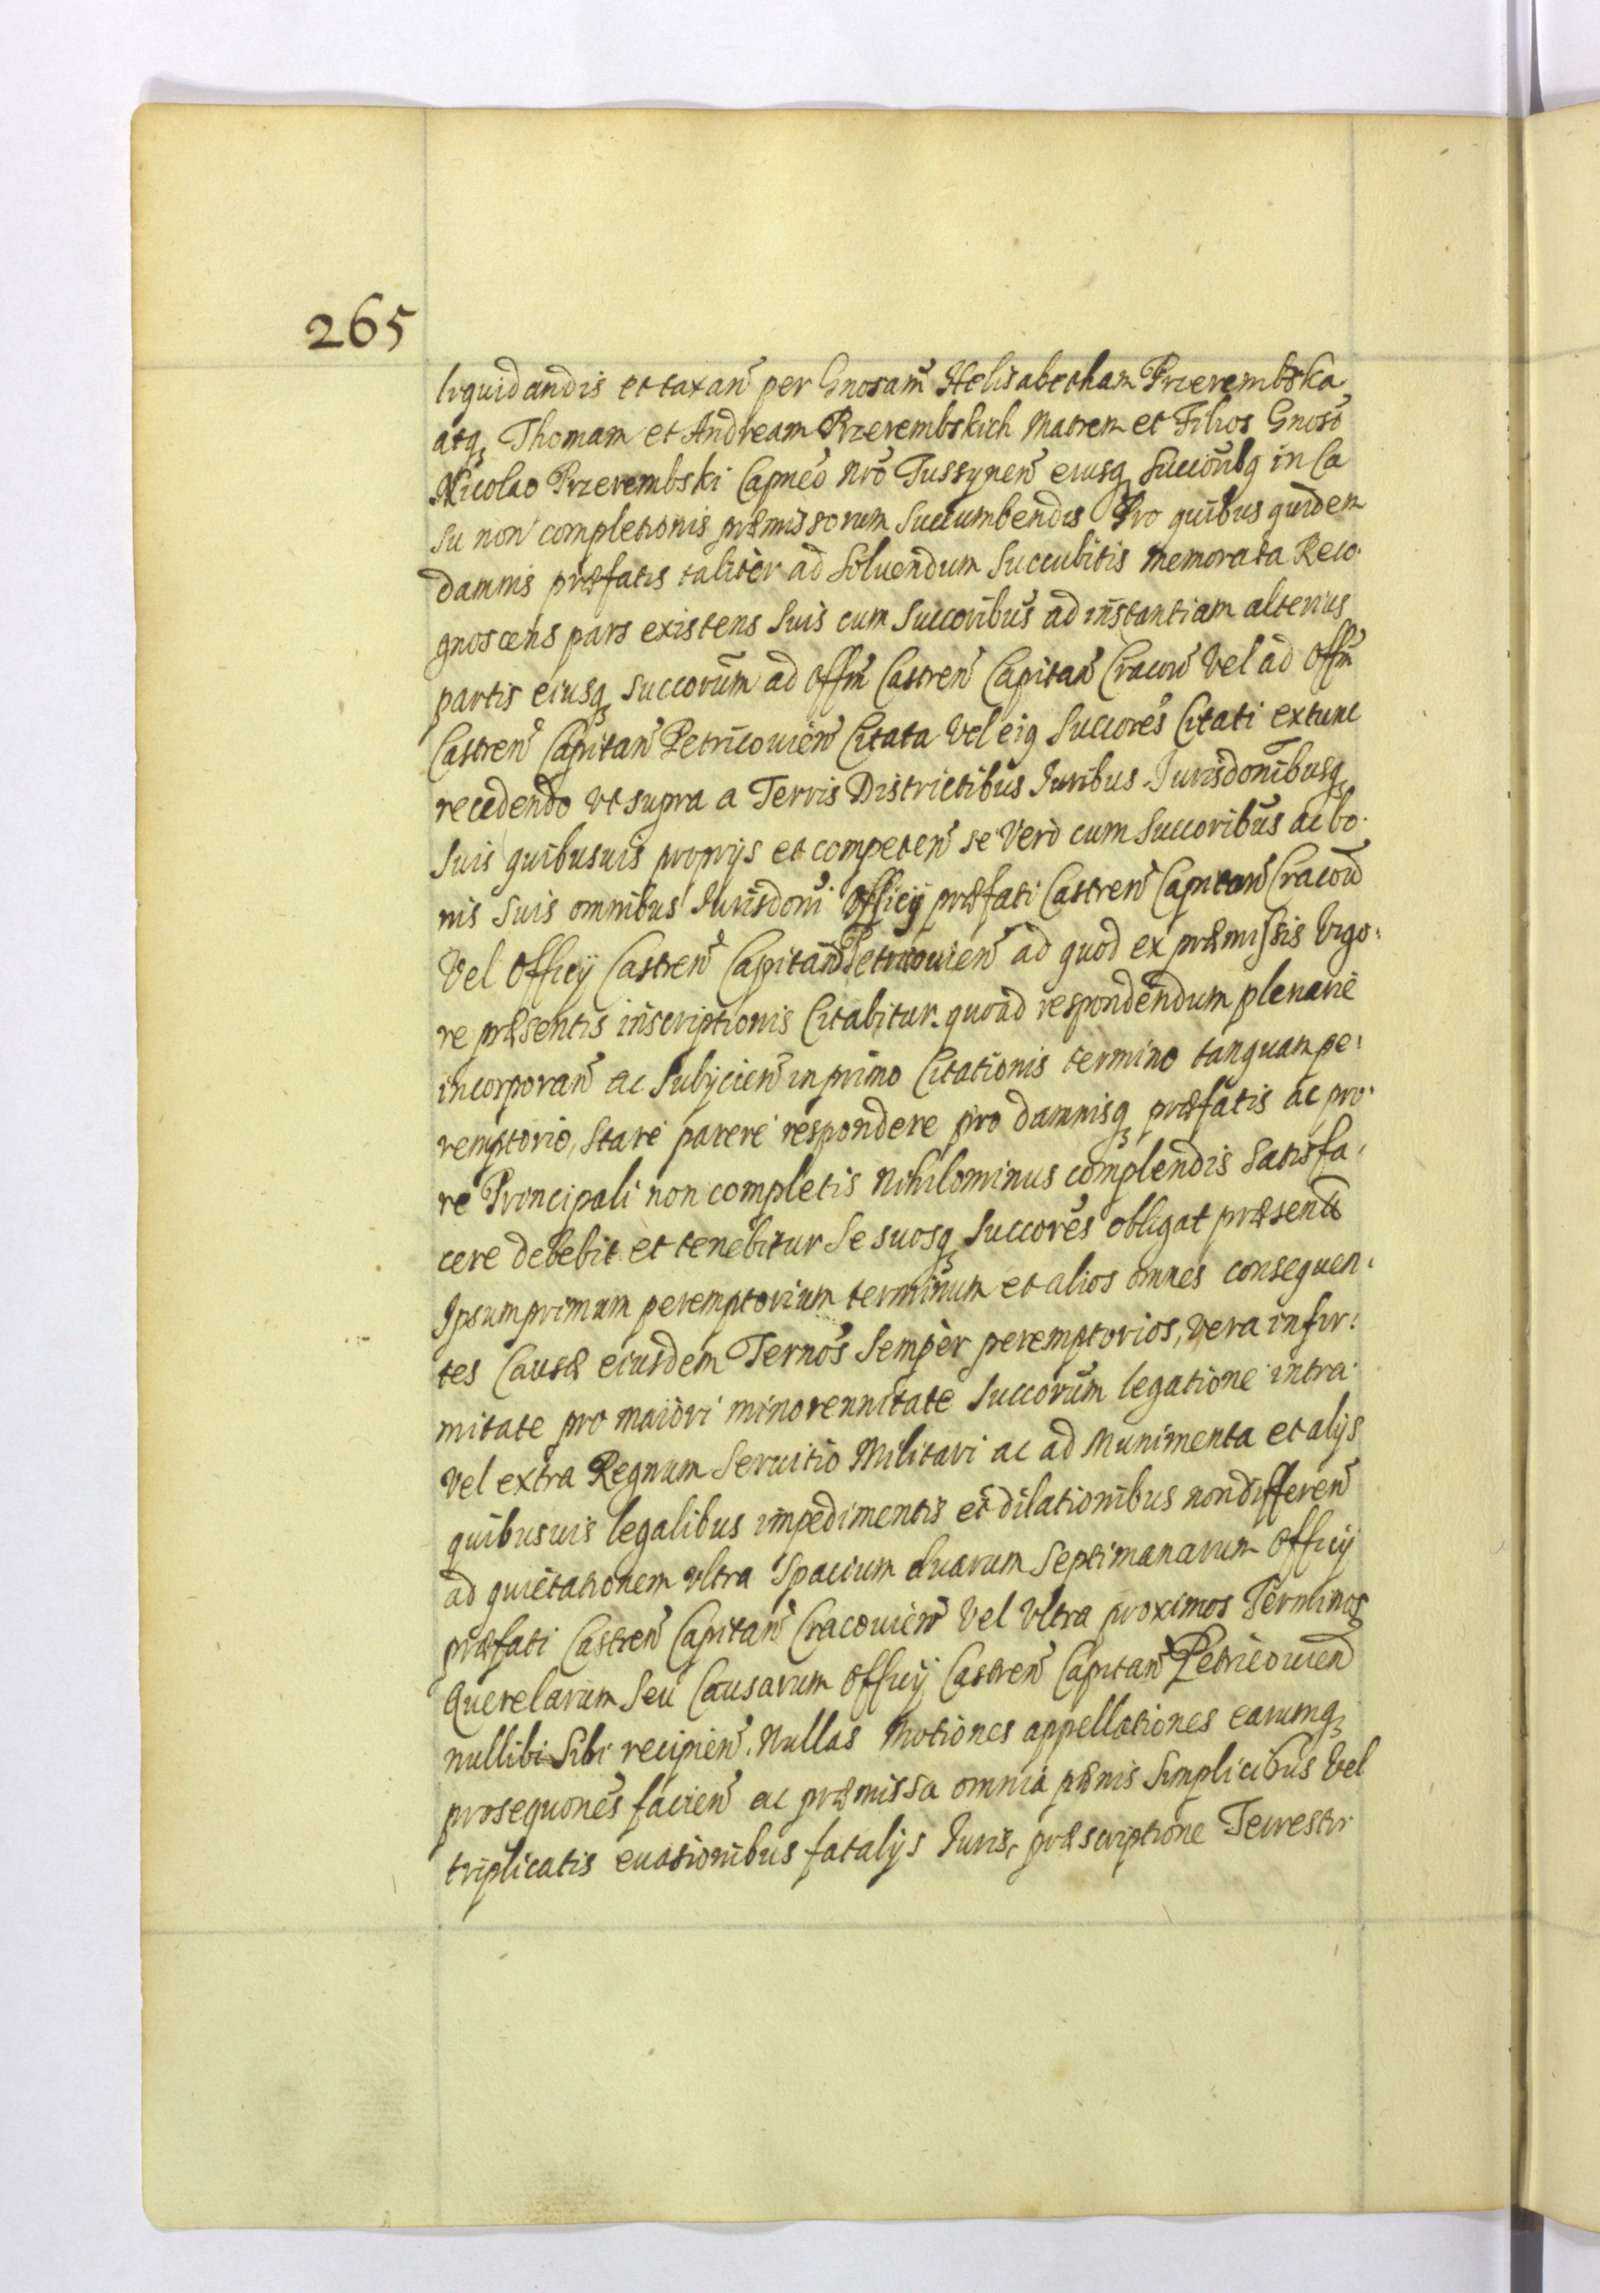 265
liquidandis et taxan̄ per Gnosam̄ Helisabetham Przerembska
atq3 Thomam et Andream Przerembskich Matrem et Filios Gnoso
Nicolao Przerembski Capneo nr̄o Tussynen̄ eiusq3 Succoribq in Ca
su non completionis præmissorum Succumbendis Pro quibus quidem
damnis præfatis taliter ad Soluendum Succubitis memorata Reco.
gnoscens pars existens Suis cum Succoribus ad instantiam alterius
partis eiusq3 Succorum̄ ad Offm̄ Castren̄ Capitan̄ Cracou̅ Vel ad Offm̄
Castren̄ Capitan̄ Petricouien̄ Citata Vel eiq Succores Citati extunc
recedendo Vt supra a Terris Districtibus Juribus Jurisdonibusq3
Suis quibusuis proprijs et competen̄ se Vero cum Succoribus ac bo.
nis Suis omnibus Jurisdoni Officij præfati Castren̄ Capitan̄ Cracou̅
Vel Officij Castren̄ Capitan̄ Petricouien̄ ad quod ex præmissis Vigo:
re præsentis inscriptionis Citabitur. quoad respondendum plenarie
incorporan̄ ac Subijcien̄ in primo Citationis termino tanquam pe:
remptorio, Stare parere respondere pro damnisq3 præfatis ac pro
re Principali non completis nihilominus complendis Satisfa:
cere debebit et tenebitur Se suosq3 Succores obligat præsentib
Ipsum primum peremptorium terminum et alios omnes consequen:
tes Causæ eiusdem Ternos Semper peremptorios, vera infir:
mitate pro maiori minorennitate Succorum̄ legatione intra
Vel extra Regnum Seruitio Militari ac ad Munimenta et alijs
quibusuis legalibus impedimentis et dilationibus non differen̄
ad quietationem Vltra Spacium duarum Septimanarum Officij
præfati Castren̄ Capitan̄ Cracouien̄ Vel Vltra proximos Terminos
Querelarum Seu Causarum Officij Castren̄ Capitan̄ Petricouien̄
nullibi Sibi recipien̄. Nullas Motiones appellationes earumq3
prosequones facien̄ ac præmissa omnia pænis Simplicibus Vel
triplicatis euasionibus fatalijs Juris, præscriptione Terrestri